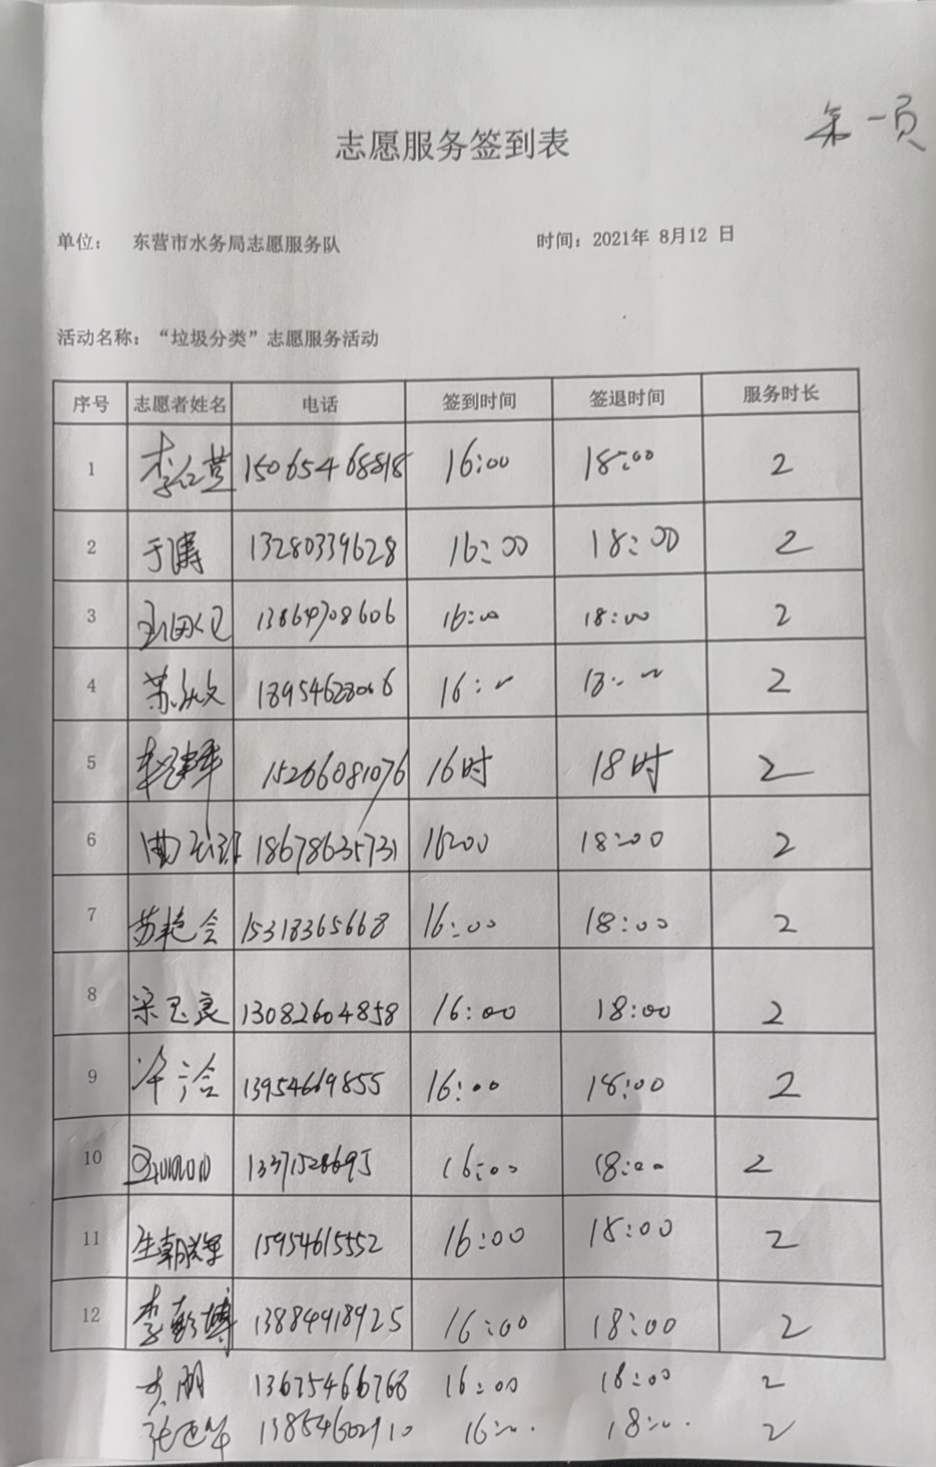 第一页
志愿服务签到表
单位： 东营市水务局志愿服务队 时间：2021年 8月12 日
活动名称：“垃圾分类”志愿服务活动
序号 志愿者姓名 电话 签到时间 签退时间 服务时长
1 李红营 15065468818 16:00 18:00 2
2 于涛 13280339628 16:00 18:00 2
3 13864708606 16:00 18:00 2
4 苏 18954628066 16: 18: 2
5 赵建军 15266081076 16时 18时 2
6 曲 18678635731 16:00 18:00 2
7 苏艳会 15318365668 16:00 18:00 2
8 宋卫良 13082604858 16:00 18:00 2
9 13954669855 16:00 18:00 2
10 13371528695 16:00 18:00 2
11 生朝辉 15954615552 16:00 18:00 2
12 李彭博 13884918925 16:00 18:00 2
13675466768 16:00 18:00 2
张 13854602910 16: 18: 2